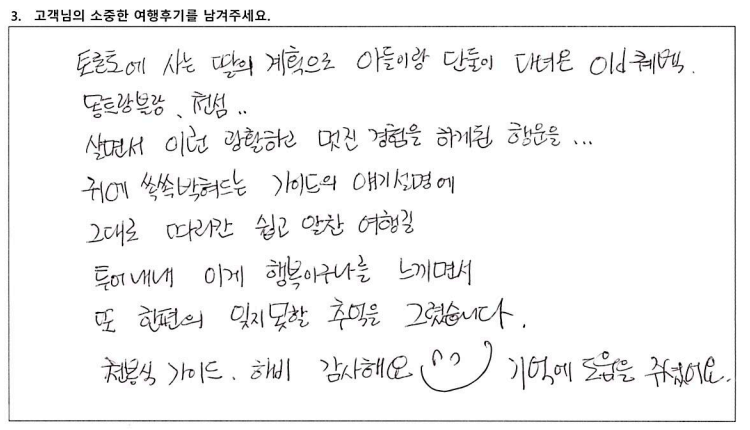 3. 고객님의 소중한 여행후기를 남겨주세요.
토론토에 사는 딸의 계획으로 아들이랑 단둘이 다녀온 Old퀘벡.
몽트랑블랑、천섬..
살면서 이런 광활하고 멋진 경험을 하게된 행운을...
귀에 쏙쏙박혀드는 가이드의 얘기설명에
그대로 따라간 쉽고 알찬 여행길
투어내내 이게 행복이구나를 느끼면서
또 한편의 잊지못할 추억을 그렸습니다.
가이드. 감사해요 기억에 도움을 주셨어요.